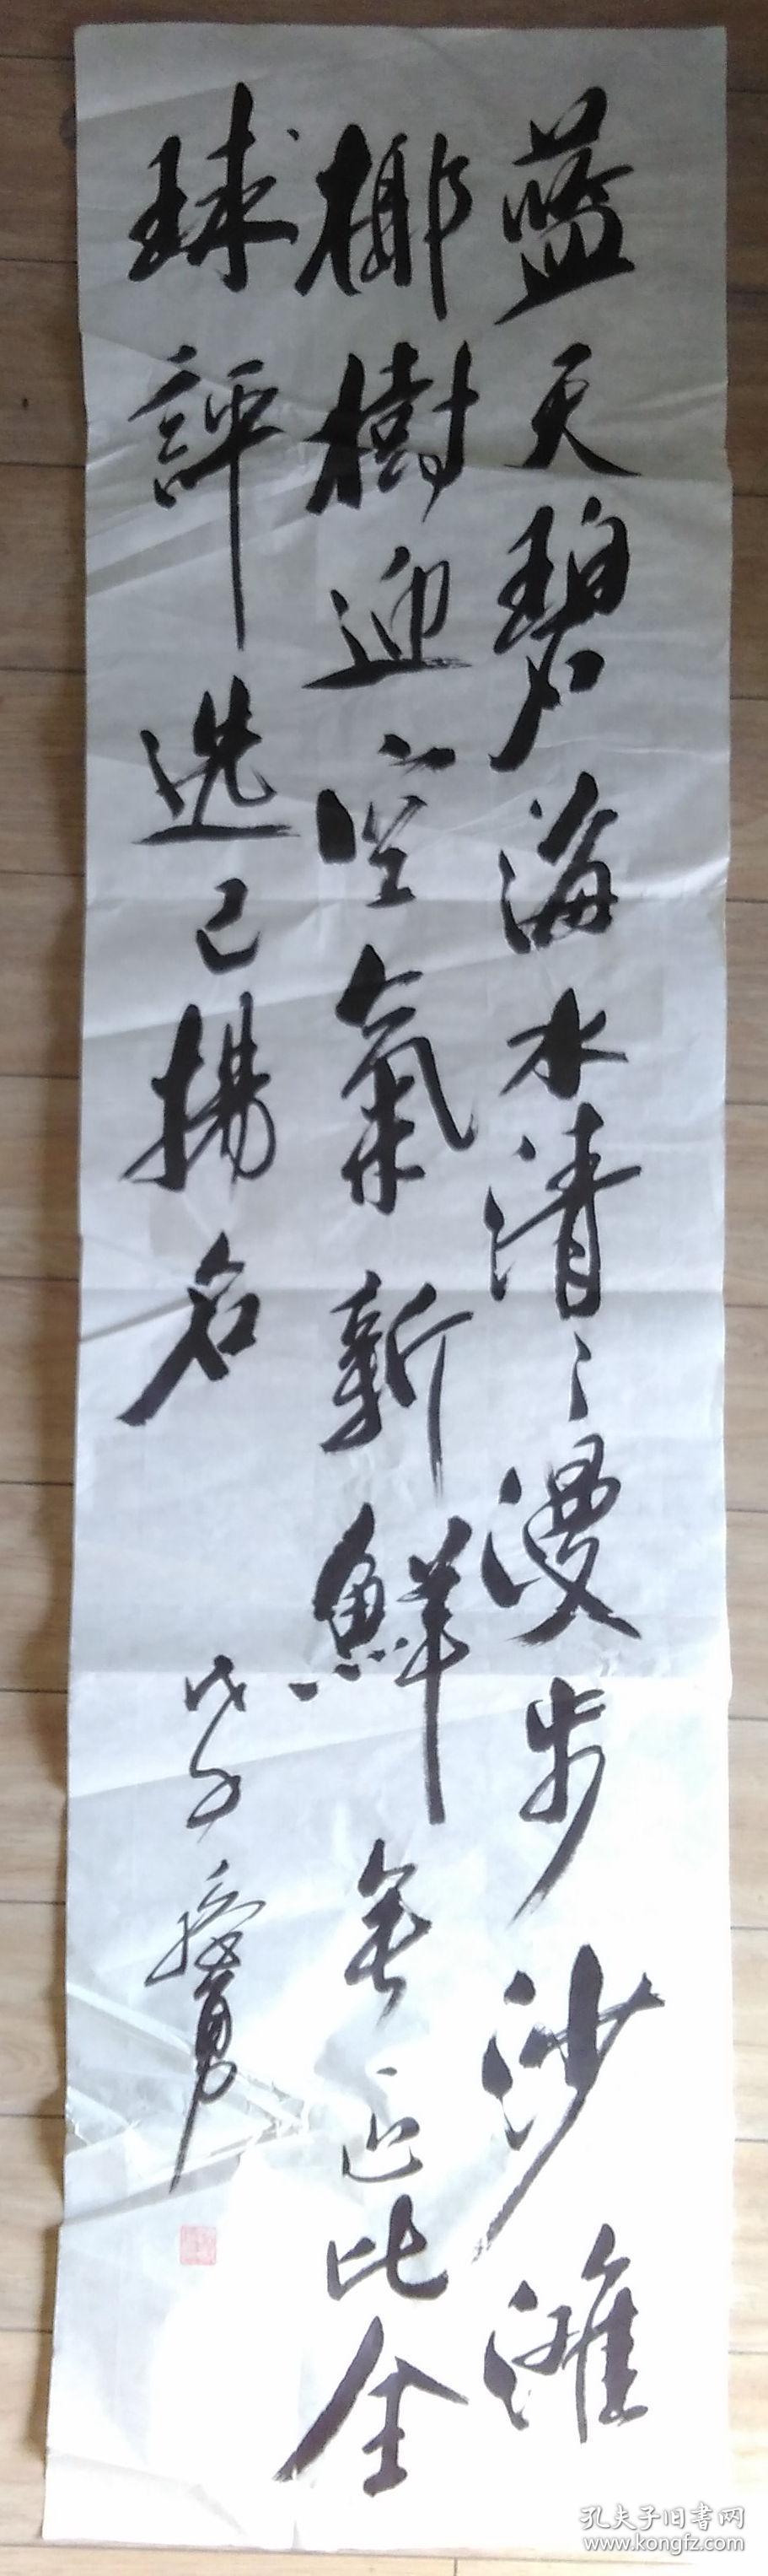 藍天碧海水清々漫步沙灘
椰樹迎空氣新鮮無比全
球評选已揚名
戊子 勇
孔夫子旧書网
www.kongfz.com